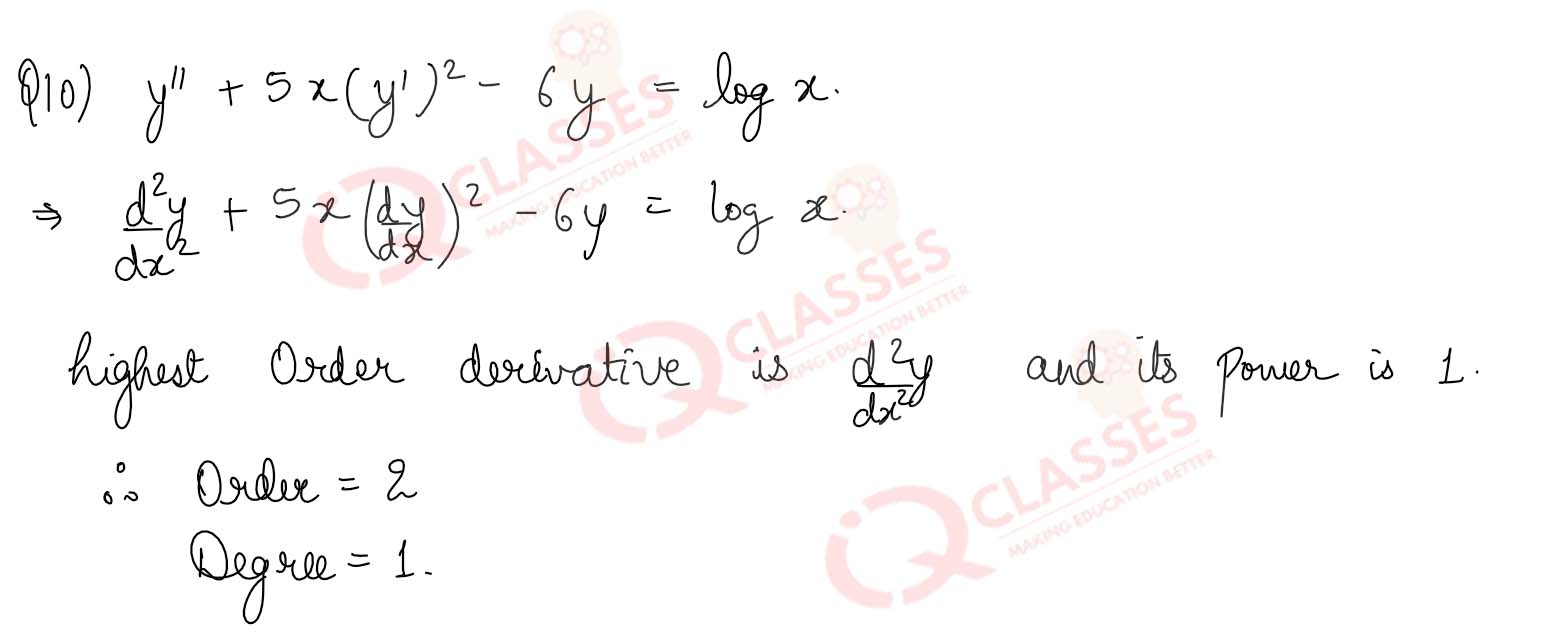 Q10) y'' + 5x(y')² - 6y = log x.
⇒ d²y/dx² + 5x(dy/dx)² - 6y = log x.
highest Order derivative is d²y/dx² and its Power is 1.
∴ Order = 2
Degree = 1.
IQ CLASSES
MAKING EDUCATION BETTER
IQ CLASSES
MAKING EDUCATION BETTER
IQ CLASSES
MAKING EDUCATION BETTER